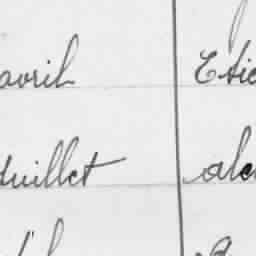 avril Etie
Juillet ale